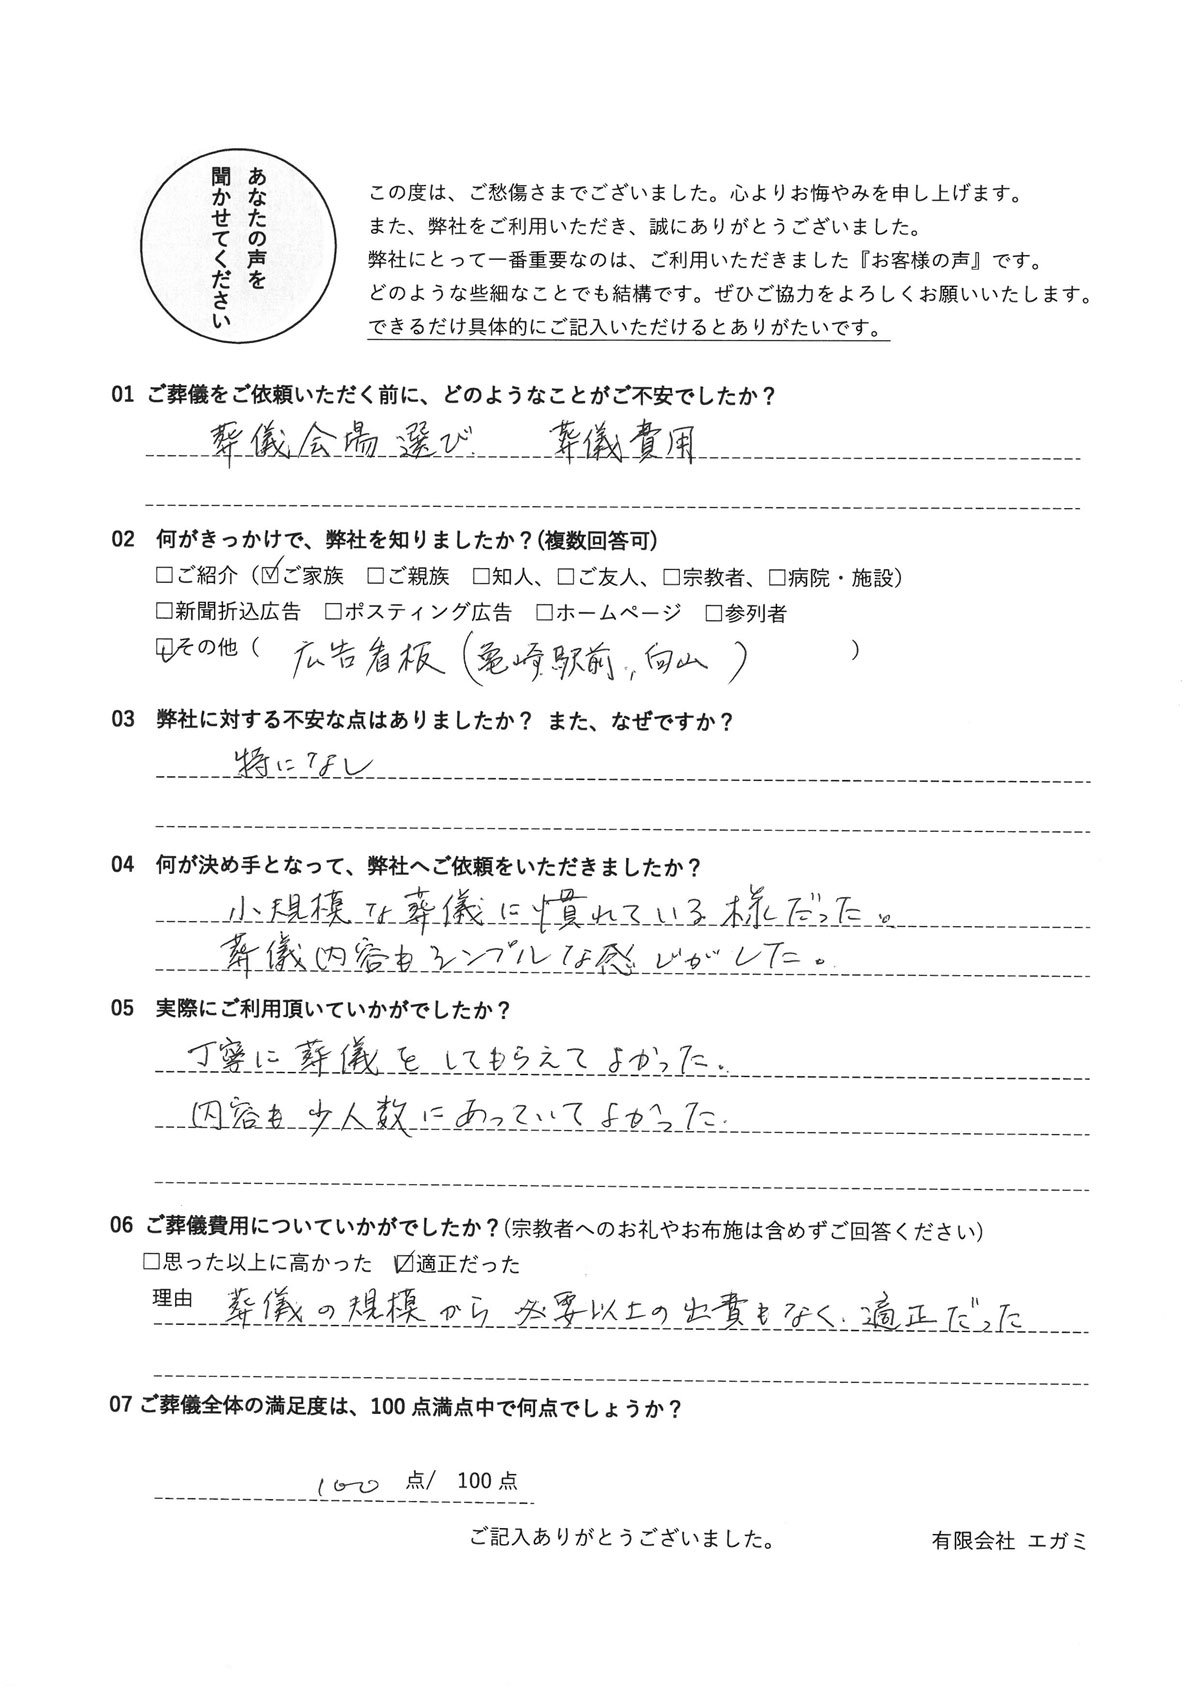 あなたの声を
聞かせてください
この度は、ご愁傷さまでございました。心よりお悔やみを申し上げます。
また、弊社をご利用いただき、誠にありがとうございました。
弊社にとって一番重要なのは、ご利用いただきました『お客様の声』です。
どのような些細なことでも結構です。ぜひご協力をよろしくお願いいたします。
できるだけ具体的にご記入いただけるとありがたいです。
01 ご葬儀をご依頼いただく前に、どのようなことがご不安でしたか？
葬儀会場選び、 葬儀費用
02 何がきっかけで、弊社を知りましたか？(複数回答可)
□ご紹介（☑ご家族 □ご親族 □知人、□ご友人、□宗教者、□病院・施設）
□新聞折込広告 □ポスティング広告 □ホームページ □参列者
☑その他（ 広告看板（亀崎駅前、向山） ）
03 弊社に対する不安な点はありましたか？ また、なぜですか？
特になし
04 何が決め手となって、弊社へご依頼をいただきましたか？
小規模な葬儀に慣れている様だった。
葬儀内容もシンプルな感じがした。
05 実際にご利用頂いていかがでしたか？
丁寧に葬儀をしてもらえてよかった。
内容も少人数にあっていてよかった。
06 ご葬儀費用についていかがでしたか？(宗教者へのお礼やお布施は含めずご回答ください)
□思った以上に高かった ☑適正だった
理由 葬儀の規模から必要以上の出費もなく、適正だった
07 ご葬儀全体の満足度は、100点満点中で何点でしょうか？
100 点/ 100点
ご記入ありがとうございました。 有限会社 エガミ